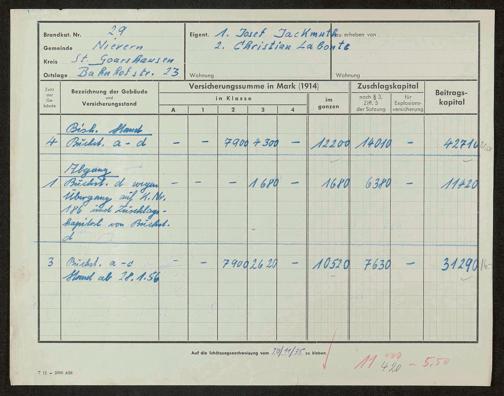 Brandkat. Nr. 29
Gemeinde Nievern
Kreis St. Goarshausen
Ortslage Bahnhofstr. 23
Eigent. 1. Josef Jackmuth
2. Christian LaBonte
Wohnung
zu erheben von
Wohnung
Zahl der Gebäude
Bezeichnung der Gebäude und Versicherungsstand
Versicherungssumme in Mark (1914)
in Klasse
A 1 2 3 4
im ganzen
Zuschlagskapital
nach § 3, Ziff. 5 der Satzung
für Explosionsversicherung
Beitragskapital
Bish. Stand
4 Buchst. a - d - - 7900 4300 - 12200 14010 - 42710
Abgang
1 Buchst. d wegen - - - 1680 - 1680 6380 - 11420
Übergang auf K. Nr.
186 und Zuschlags-
kapital von Buchst.
d
3 Buchst. a - c - - 7900 2620 - 10520 7630 - 31290
Stand ab 28.1.56
Auf die Schätzungsanweisung vom 20/11/55 zu kleben
11 420 - 5.50